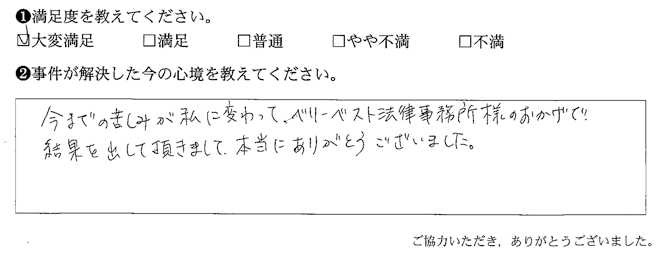 ❶満足度を教えてください。
☑大変満足 □満足 □普通 □やや不満 □不満
❷事件が解決した今の心境を教えてください。
今までの苦しみが私に変わって、ベリーベスト法律事務所様のおかげで!
結果を出して頂きまして、本当にありがとうございました。
ご協力いただき、ありがとうございました。